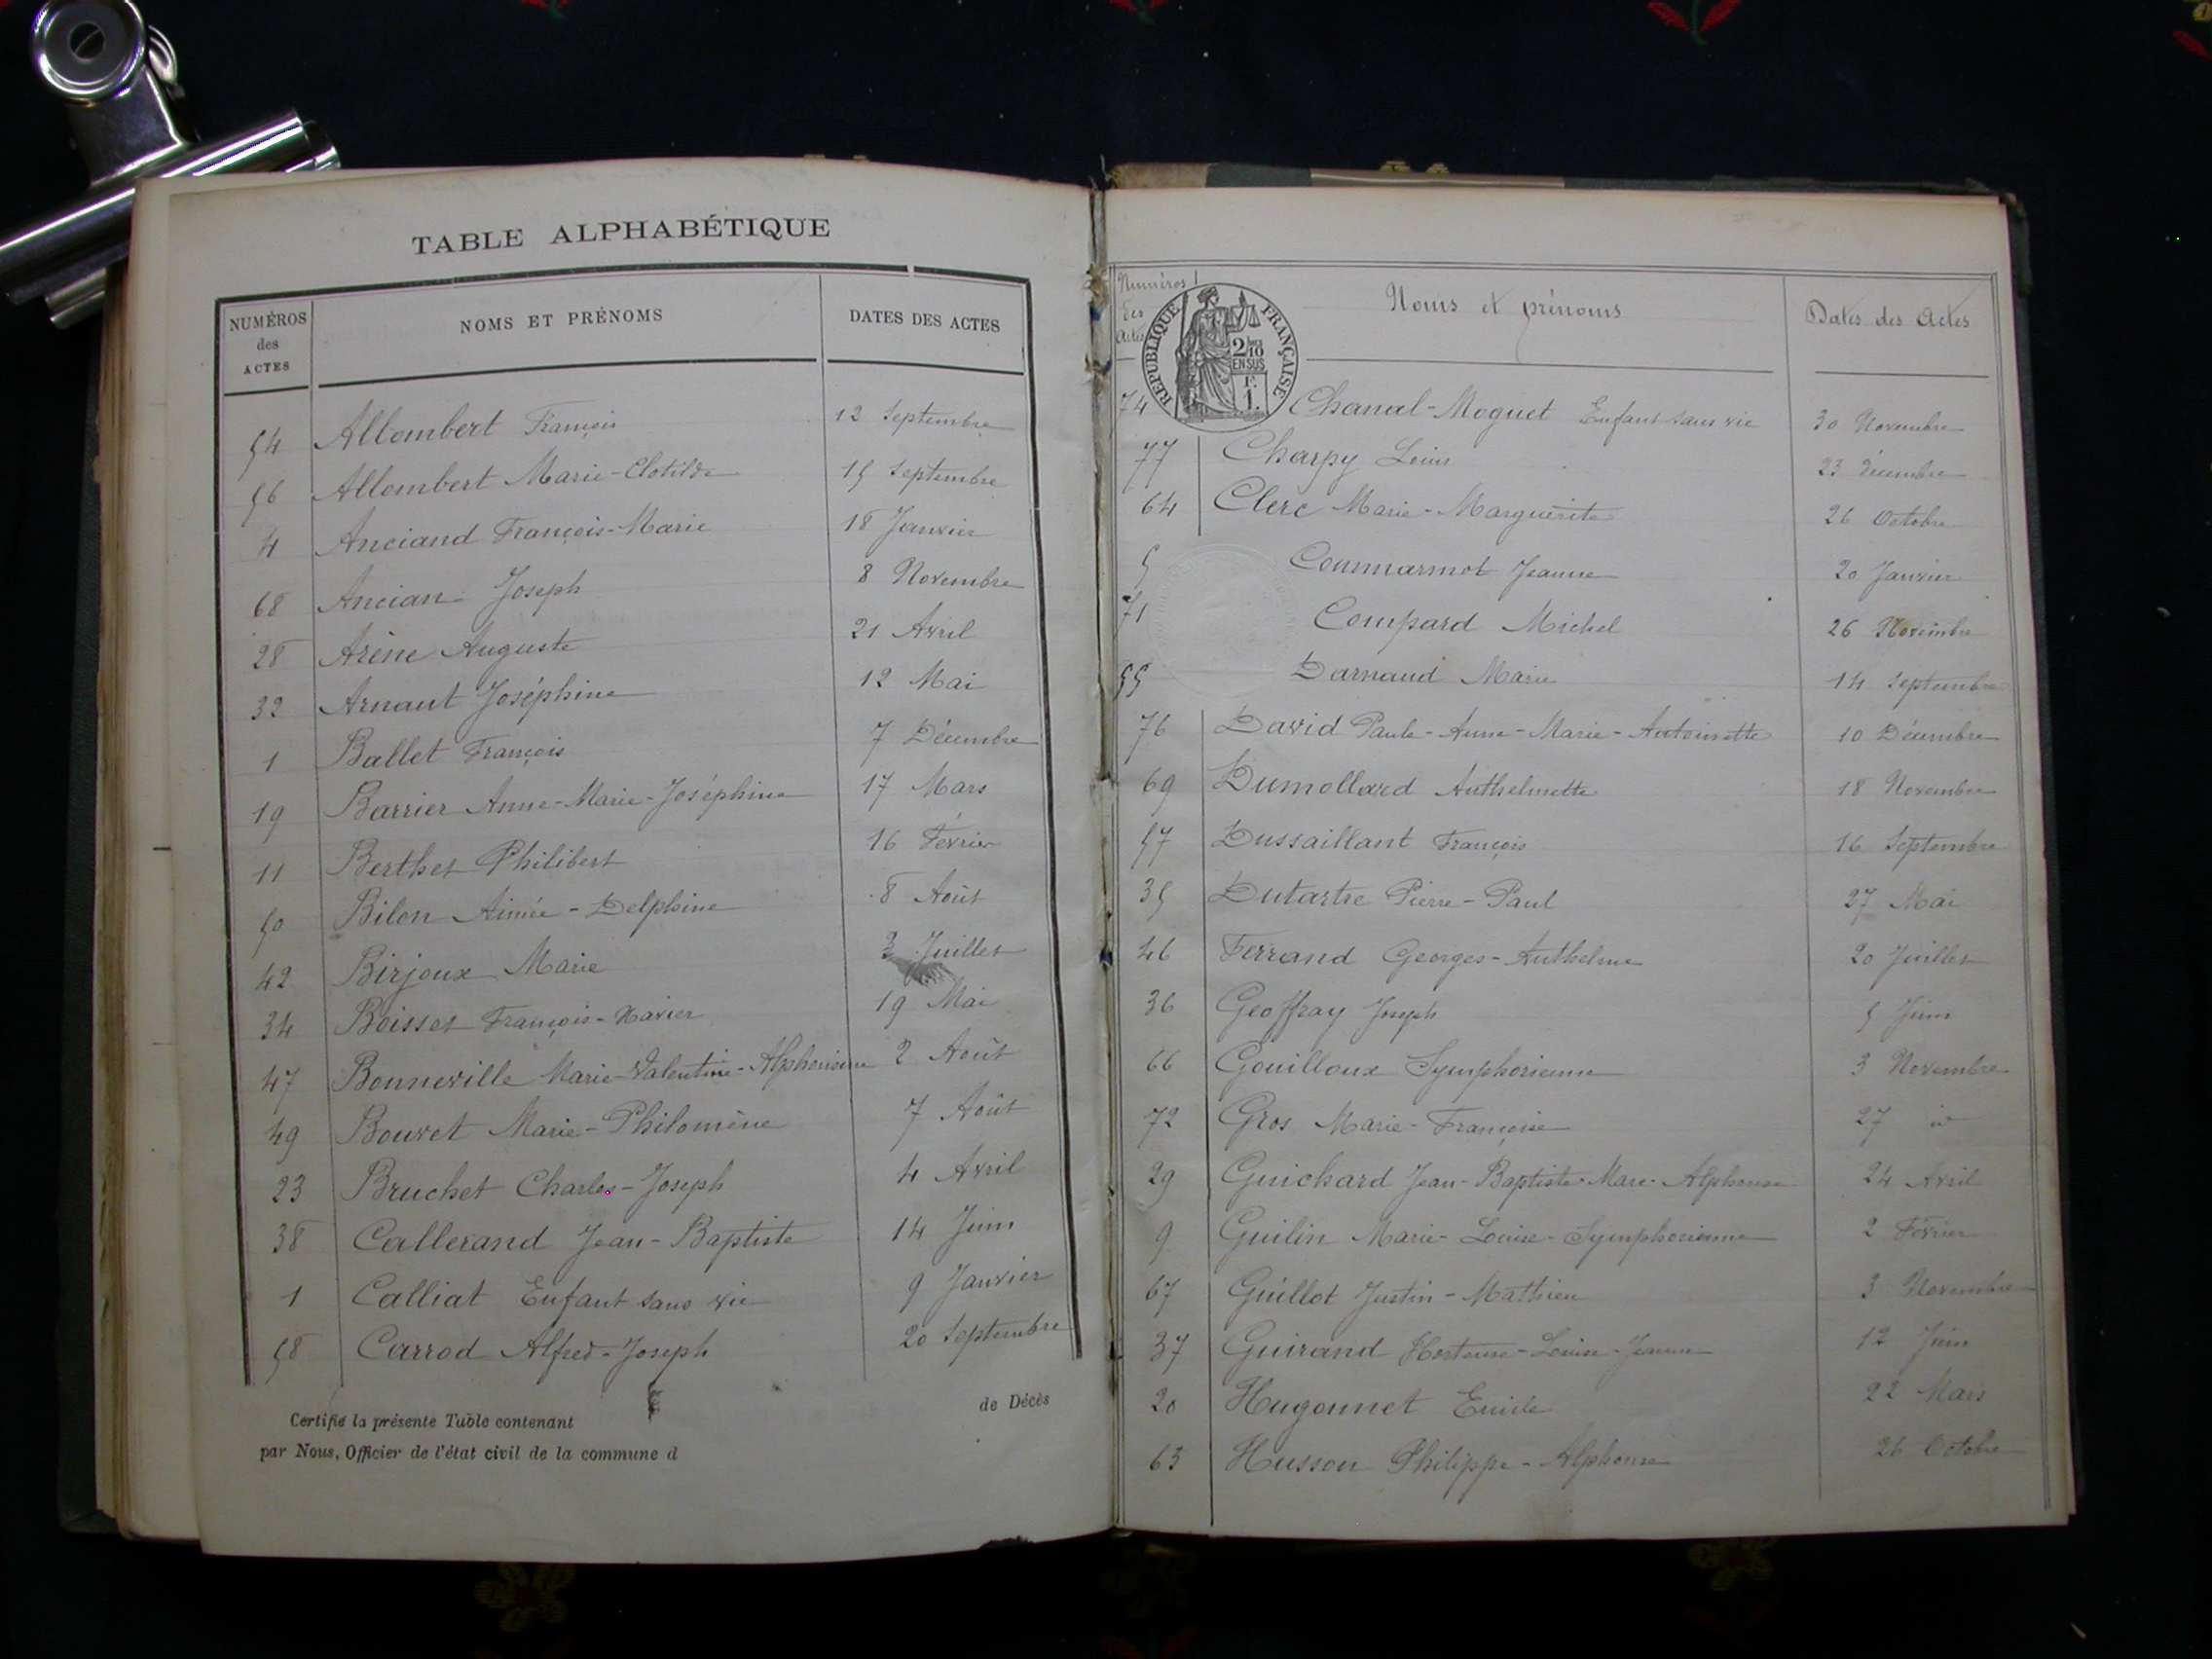 TABLE ALPHABÉTIQUE
NUMÉROS des ACTES NOMS ET PRÉNOMS DATES DES ACTES
54 Allombert François 12 Septembre
56 Allombert Marie-Clotilde 15 Septembre
4 Anciand François-Marie 18 Janvier
68 Ancian Joseph 8 Novembre
28 Arène Auguste 21 Avril
32 Arnaut Joséphine 12 Mai
1 Ballet François 7 Décembre
19 Barrier Anne-Marie-Joséphine 17 Mars
11 Berthet Philibert 16 Février
50 Bilon Aimée-Delphine 8 Août
42 Birjoux Marie Juillet
34 Boisset François-Xavier 19 Mai
47 Bonneville Marie-Valentine-Alphonsine 2 Août
49 Bouvet Marie-Philomène 7 Août
23 Bruchet Charles-Joseph 4 Avril
38 Callerand Jean-Baptiste 14 Juin
1 Calliat Enfant sans vie 9 Janvier
58 Carrod Alfred-Joseph 20 Septembre
Certifié la présente Table contenant de Décès
par Nous, Officier de l'état civil de la commune d
Numéros des actes Noms et prénoms Dates des Actes
RÉPUBLIQUE FRANÇAISE
2/10
EN SUS
1F.
1.
74 Chanal-Moguet Enfant sans vie 30 Novembre
77 Charpy Louis 23 Décembre
64 Clerc Marie-Marguerite 26 Octobre
5 Coumarmot Jeanne 20 Janvier
71 Coupard Michel 26 Novembre
55 Darnaud Marie 14 Septembre
76 David Paule-Anne-Marie-Antoinette 10 Décembre
69 Dumollard Anthelmette 18 Novembre
57 Dussaillant François 16 Septembre
35 Dutartre Pierre-Paul 27 Mai
46 Ferrand Georges-Anthelme 20 Juillet
36 Geoffray Joseph 5 Juin
66 Gouilloux Symphorienne 3 Novembre
72 Gros Marie-Françoise 27 id
29 Guichard Jean-Baptiste-Marc-Alphonse 24 Avril
9 Guilin Marie-Louise-Symphorienne 2 Février
67 Guillot Justin-Mathieu 3 Novembre
37 Guirand Hortense-Louise-Jeanne 12 Juin
20 Hugonnet Emile 22 Mars
63 Husson Philippe-Alphonse 26 Octobre